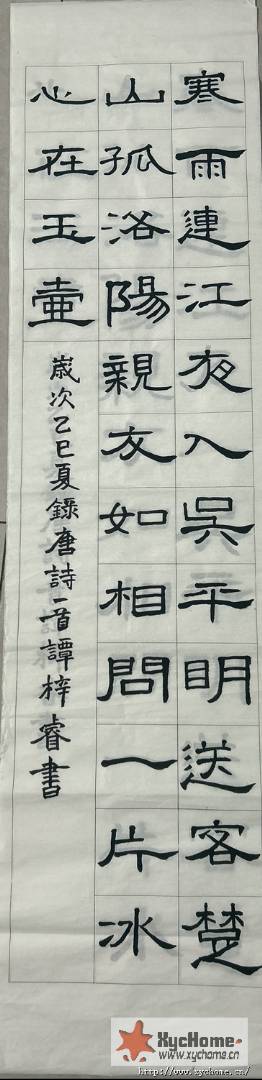 寒雨連江夜入吳平明送客楚
山孤洛陽親友如相問一片冰
心在玉壷
歳次乙巳夏錄唐詩一首譚梓睿書
XycHome
www.xychome.cn
https://www.xychome.cn/